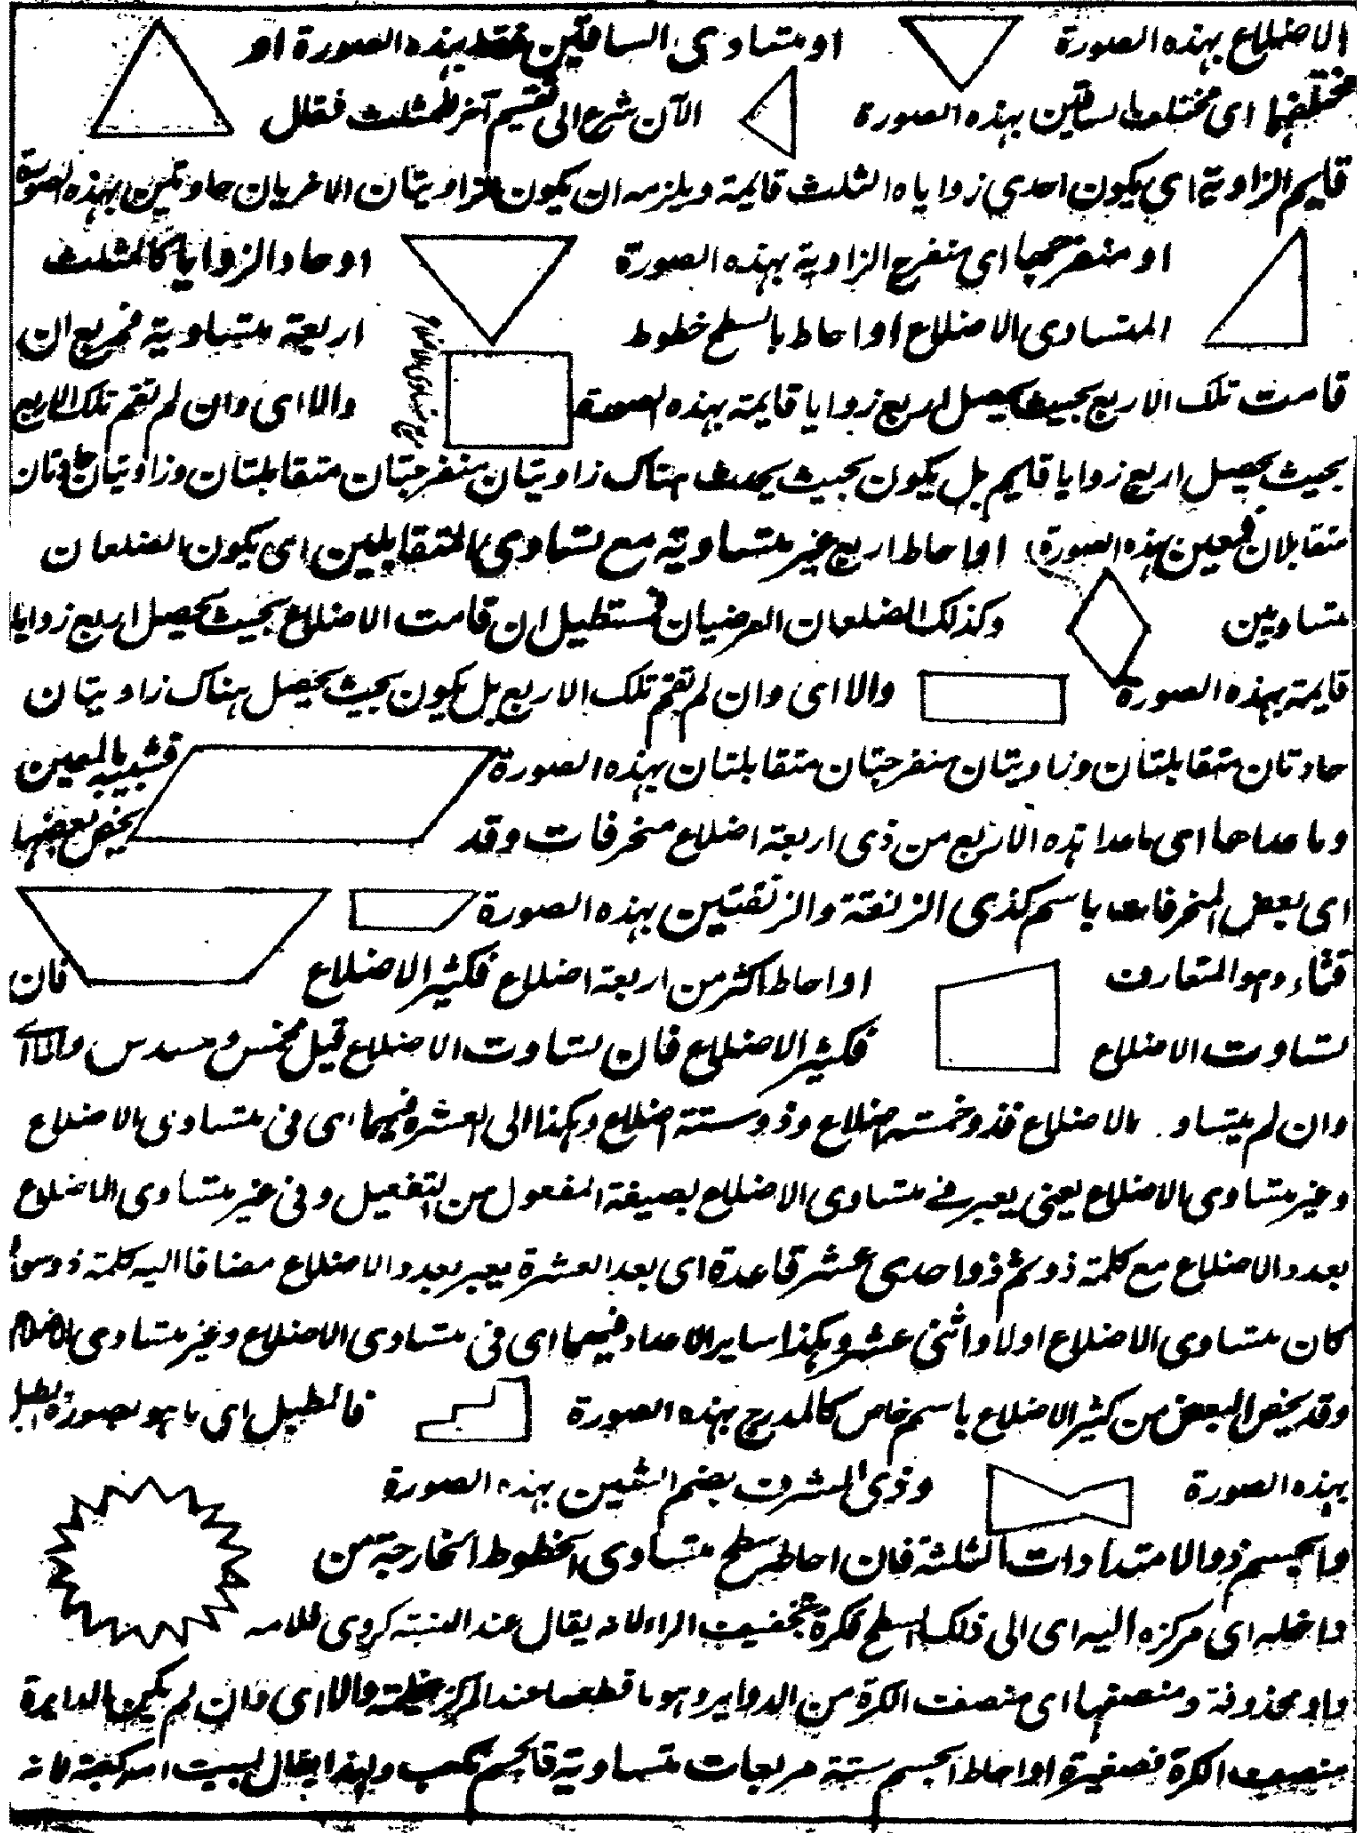 الاضلاع بهذه الصورة او متساوى الساقين فقط بهذه الصورة او
مختلفها اى مختلف الساقين بهذه الصورة الآن شرع الى تقسيم آخر للمثلث فقال
قايم الزاوية اى يكون احدى زواياه الثلث قايمة ويلزمه ان يكون الزاويتان الاخريان حادتين بهذه الصورة
او منفرجها اى منفرج الزاوية بهذه الصورة او حاد الزوايا كالمثلث
المتساوى الاضلاع او احاط بالسطح خطوط اربعة متساوية فمربع ان
قامت تلك الاربع بحيث يحصل اربع زوايا قايمة بهذه الصورة والا اى وان لم تقم تلك الاربع
بحيث يحصل اربع زوايا قايم بل يكون بحيث يحدث هناك زاويتان منفرجتان متقابلتان وزاويتان حادتان
متقابلان فمعين بهذه الصورة او احاط اربع غير متساوية مع تساوى المتقابلين اى يكون الضلعان
متساويين وكذلك الضلعان العرضيان فمستطيل ان قامت الاضلاع بحيث يحصل اربع زوايا
قايمة بهذه الصورة والا اى وان لم تقم تلك الاربع بل يكون بحيث يحصل هناك زاويتان
حادتان متقابلتان وزاويتان منفرجتان متقابلتان بهذه الصورة فشبيه بالمعين
وما عداها اى ما عدا هذه الاربع من ذى اربعة اضلاع منحرفات وقد يخص بعضها
اى بعض المنحرفات باسم كذى الزنقة والزنقتين بهذه الصورة
قثاء وهو المتعارف او احاط اكثر من اربعة اضلاع فكثير الاضلاع فان
تساوت الاضلاع فكثير الاضلاع فان تساوت الاضلاع قيل مخمس ومسدس والا اى
وان لم يتساو الاضلاع فذو خمسة اضلاع وذو ستة اضلاع وهكذا الى العشرة فيهما اى فى متساوى الاضلاع
وغير متساوى الاضلاع يعنى يعبر فى متساوى الاضلاع بصيغة المفعول من التفعيل وفى غير متساوى الاضلاع
بعدد الاضلاع مع كلمة ذو ثم ذو احدى عشر قاعدة اى بعد العشرة يعبر بعدد الاضلاع مضافا اليه كلمة ذو سواء
كان متساوى الاضلاع اولا واثنى عشر وهكذا ساير الاعداد فيهما اى فى متساوى الاضلاع وغير متساوى الاضلاع
وقد يخص البعض من كثير الاضلاع باسم خاص كالمدرج بهذه الصورة فالمطبل اى ما هو بصورة الطبل
بهذه الصورة وذى الشرف بضم الشين بهذه الصورة
والجسم ذو الامتدادات الثلثة فان احاطه سطح متساوى الخطوط الخارجة من
داخله اى مركزه اليه اى الى ذلك السطح فكرة بتخفيف الراء لانه يقال عند النسبة كروى فلامه
واو محذوفة ومنصفها اى منصف الكرة من الدواير وهو ما قطعها عند المركز عظيمة والا اى وان لم يكن الدايرة
منصف الكرة فصغيرة او احاط الجسم ستة مربعات متساوية فالجسم مكعب ولهذا يقال لبيت الله كعبة لانه